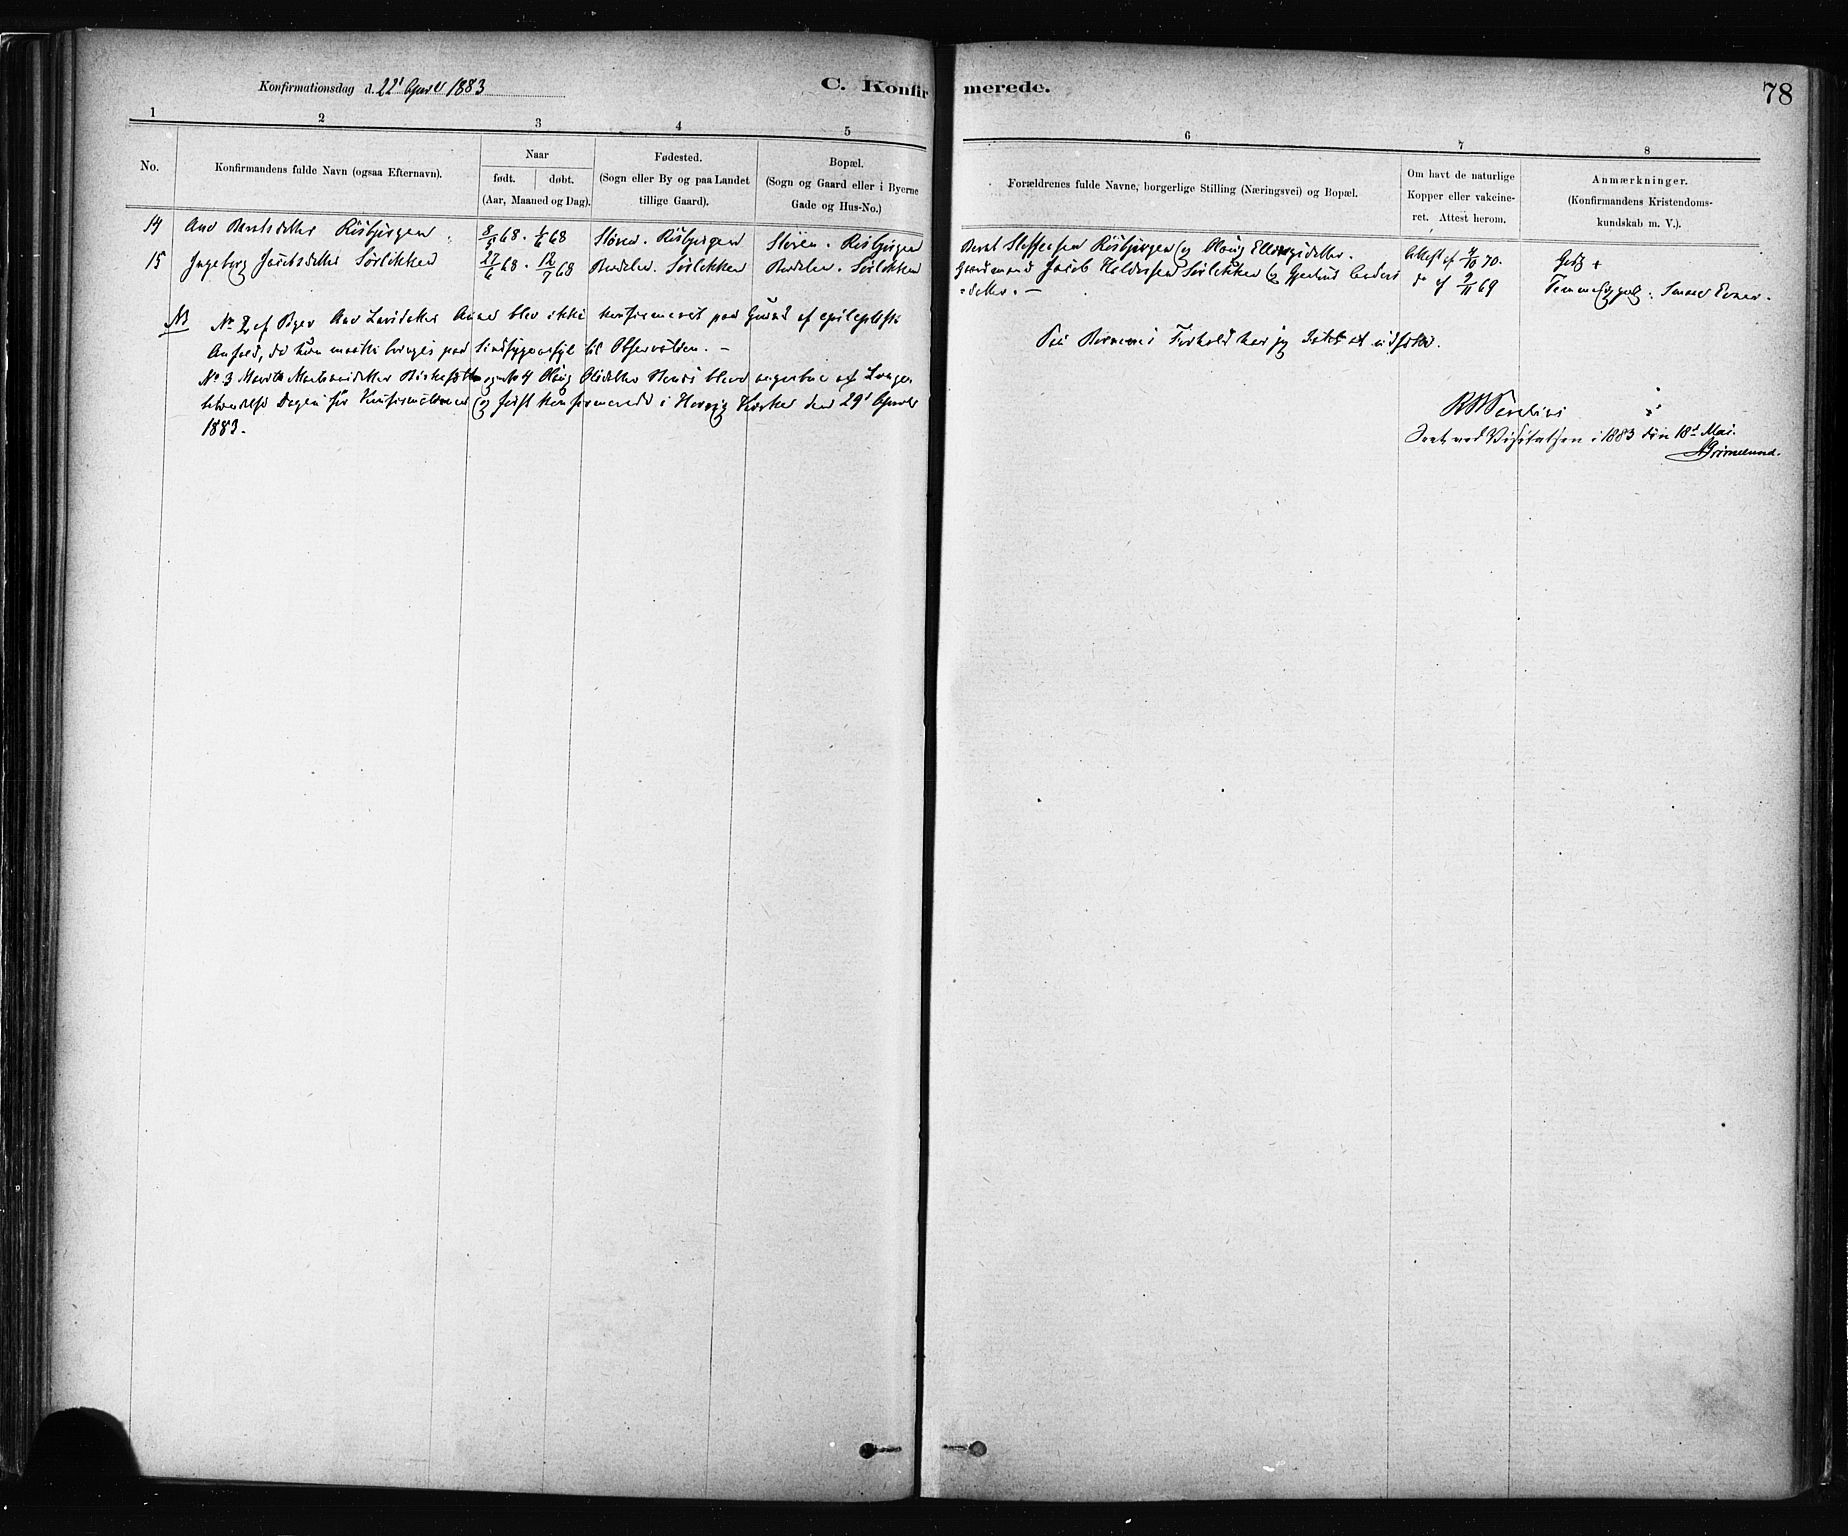 Konfirmationsdag d. 22' April 1883
C. Konfirmerede.
78
1 2 3 4 5 6 7 8
No.
Konfirmandens fulde Navn (ogsaa Efternavn).
Naar
født. døbt.
(Aar, Maaned og Dag).
Fødested.
(Sogn eller By og paa Landet
tillige Gaard).
Bopæl.
(Sogn og Gaard eller i Byerne
Gade og Hus-No.)
Forældrenes fulde Navne, borgerlige Stilling (Næringsvei) og Bopæl.
Om havt de naturlige
Kopper eller vakcine-
ret. Attest herom.
Anmærkninger.
(Konfirmandens Kristendoms-
kundskab m. V.).
14 Ane Berntsdatter Risbjørgen 8/5 68. 68 Støren. Risbjørgen Støren. Risbjørgen Bernt Steffensen Risbjørgen og Olaug Ellingsdatter. Attest af 4/10 70. Godt +
15 Ingeborg Jacobsdatter Sørlikken 27/6 68. 12/7 68 Budalen. Sørlikken Budalen. Sørlikken Gaardmand Jacob Sørlikken og Gjertrud Anders
datter. — do af 9/11 69 Temmelig godt. Smaae Evner.
NB No 2 af Piger Ane blev ikke konfirmeret paa Grund af epileptisk
Anfald, da hun maatte bringes paa Sindsygeasyl til Observation. —
No 3 Marit og No 4 Olaug Olsdatter blev angrebne af Lunge-
betændelse Dagen før Konfirmationen og først konfirmerede i Kirke den 29' April
1883.
Paa Børnenes Forhold har jeg Intet at udsætte.
Seet ved Visitatsen i 1883 den 18d Mai.
Grimelund.